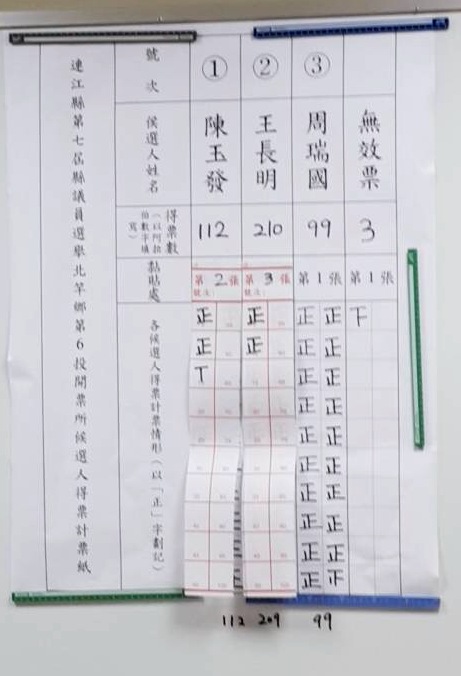 連江縣第七屆縣議員選舉北竿鄉第6投開票所候選人得票計票紙
號次 ① ② ③
候選人姓名 陳玉發 王長明 周瑞國 無效票
得票數(以阿拉伯數字填寫) 112 210 99 3
黏貼處 第2張 第3張 第1張 第1張
號次: 號次:
各候選人得票計票情形(以「正」字劃記)
正 正 正 正 下
正 正 正 正
T 正 正
正 正
正 正
正 正
正 正
正 正
正 正
正
112 209 99